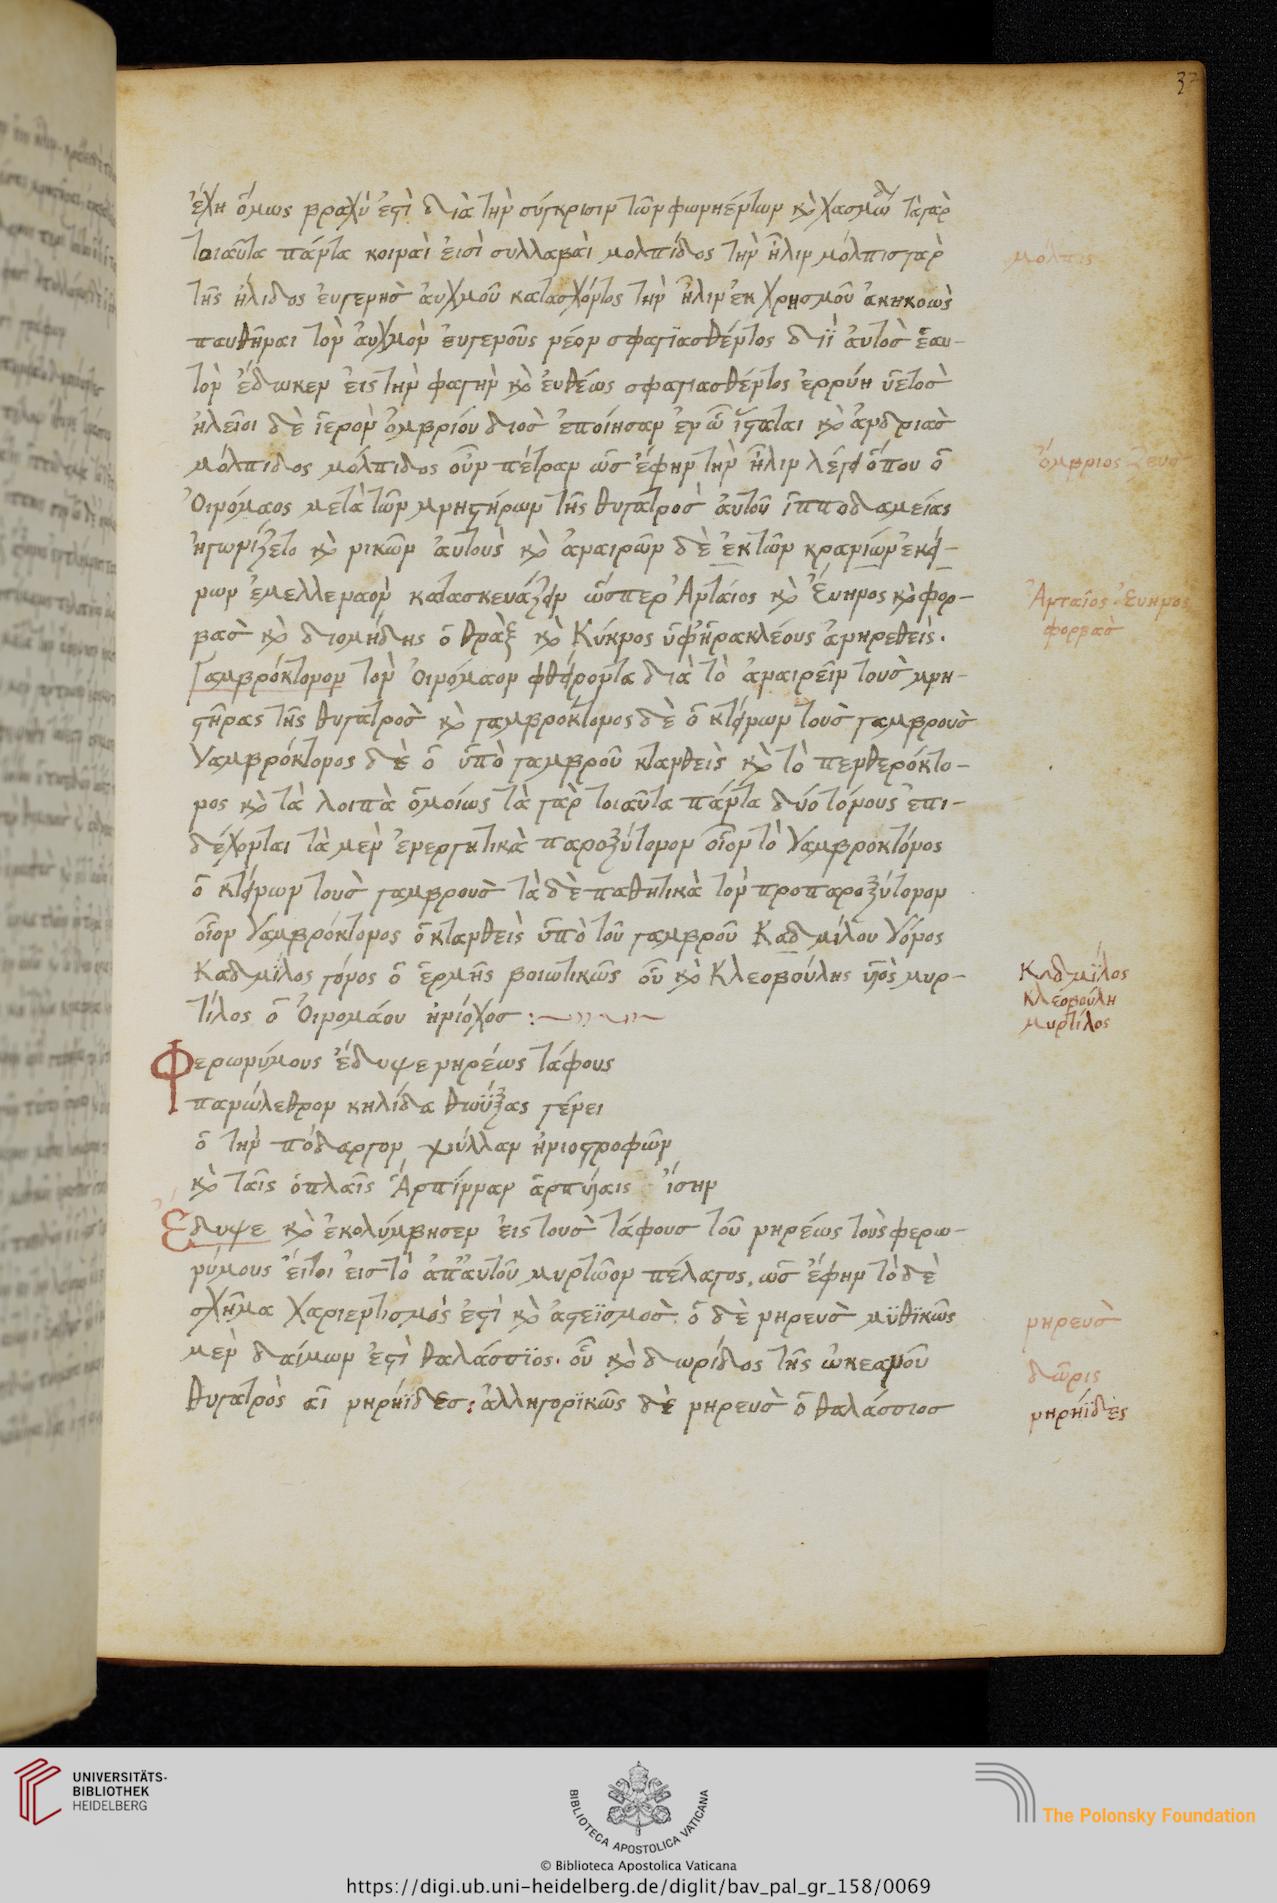 32
ἔχη ὅμως βραχύ ἐστὶ διὰ τὴν σύγκρισιν τῶν φωνηέντων κὶ χασμῳδ τὰ γὰρ
τοιαῦτα πάντα κοιναὶ εἰσὶ συλλαβαὶ μολπίδος τὴν ἦλιν μόλπις γὰρ
τῆς ἤλιδος ἐυγενὴσ ἀυχμοῦ κατασχόντος τὴν ἦλιν ἐκ χρησμοῦ ἀκηκοὼς
παυθῆναι τὸν ἀυχμὸν ἐυγενοῦς νέον σφαγϊασθέντος διῒ ἀυτὸσ ἑαυ-
τὸν ἔδωκεν εἰς τὴν φαγὴν κὶ ἐυθέως σφαγιασθέντος ἐρρύη ὑετὸσ
ἠλεῖοι δὲ ἱερὸν ὀμβρίου διὸσ ἐποίησαν ἐν ᾧ ἵσταται κὶ ἀνδριὰσ
μόλπιδος μόλπιδος οὖν πέτραν ὡς ἔφην τὴν ἦλιν λέγει ὅπου ὁ
Ὀινόμαος μετὰ τῶν μνηστήρων τῆς θυγατρὸσ ἀυτοῦ ἱπποδαμείας
ἠγωνίζετο κὶ νικῶν ἀυτοὺς κὶ ἀναιρῶν δὲ ἐκ τῶν κρανίων ἐκεί-
νων ἔμελλε ναὸν κατασκευάζειν ὥσπερ Ἀνταίος κὶ Ἔυηνος κὶ φορ-
βασ κὶ διομήδης ὁ θρὰξ κὶ Κύκνος ὑφ' ἡρακλέους ἀνηρεθείς.
Γαμβρόκτονον τὸν Ὀινόμαον φθείροντα διὰ τὸ ἀναιρεῖν τοὺσ μνη-
στῆρας τῆς θυγατρὸσ κὶ γαμβροκτόνος δὲ ὁ κτείνων τοὺσ γαμβροὺσ
γαμβρόκτονος δὲ ὁ ὑπὸ γαμβροῦ κτανθεὶς κὶ τὸ πενθερόκτο-
νος κὶ τὰ λοιπὰ ὁμοίως τὰ γὰρ τοιαῦτα πάντα δύο τόνους ἐπι-
δέχονται τὰ μὲν ἐνεργητικὰ παροξύτονον οἷον τὸ γαμβροκτόνος
ὁ κτείνων τοὺσ γαμβροὺσ τὰ δὲ παθητικὰ τὸν προπαροξύτονον
οἷον γαμβρόκτονος ὁ κτανθεὶς ὑπὸ τοῦ γαμβροῦ Καδμίλου γόνος
Καδμϊλος γόνος ὁ ἑρμῆς βοιωτικῶς οὗ κὶ Κλεοβούλης ὑιὸς μυρ-
τίλος ὁ Ὀινομάου ἡνίοχοσ :
Φερωνύμους ἔδυψε νηρέως τάφους
πανώλεθρον κηλίδα θωΰξας γένει
ὁ τὴν πόδαργον ψύλλαν ἡνιοστροφῶν
κὶ ταῖς ὁπλαῖς Ἅρπινναν ἁρπυίαις ἴσην
Ἔδυψε κὶ ἐκολύμβησεν εἰς τοὺσ τάφουσ τοῦ νηρέως τοὺς φερω-
νύμους ἤτοι εἰσ τὸ ἀπ' αυτοῦ μυρτῶον πέλαγος, ὡσ ἔφην τὸ δὲ
σχῆμα χαριεντισμός ἐστὶ κὶ ἀστεϊσμοσ. ὁ δὲ νηρεὺσ μϋθϊκῶς
μὲν δαίμων ἐστὶ θαλάσσϊος. οὗ κὶ δωρίδος τῆς ὠκεανοῦ
θυγατρὸς αἱ νηρηΐδεσ: ἀλληγορϊκῶς δὲ νηρεὺσ ὁ θαλάσσιοσ
μόλπις
ὄμβριος Ζευσ
Ἀνταῖος. Ἔυηνος
φορβασ
Καδμΐλος
Κλεοβούλη
μυρτίλος
νηρεὺσ
δῶρις
νηρηΐδὲς
UNIVERSITÄTS-
BIBLIOTHEK
HEIDELBERG
BIBLIOTECA APOSTOLICA VATICANA
The Polonsky Foundation
© Biblioteca Apostolica Vaticana
https://digi.ub.uni-heidelberg.de/diglit/bav_pal_gr_158/0069